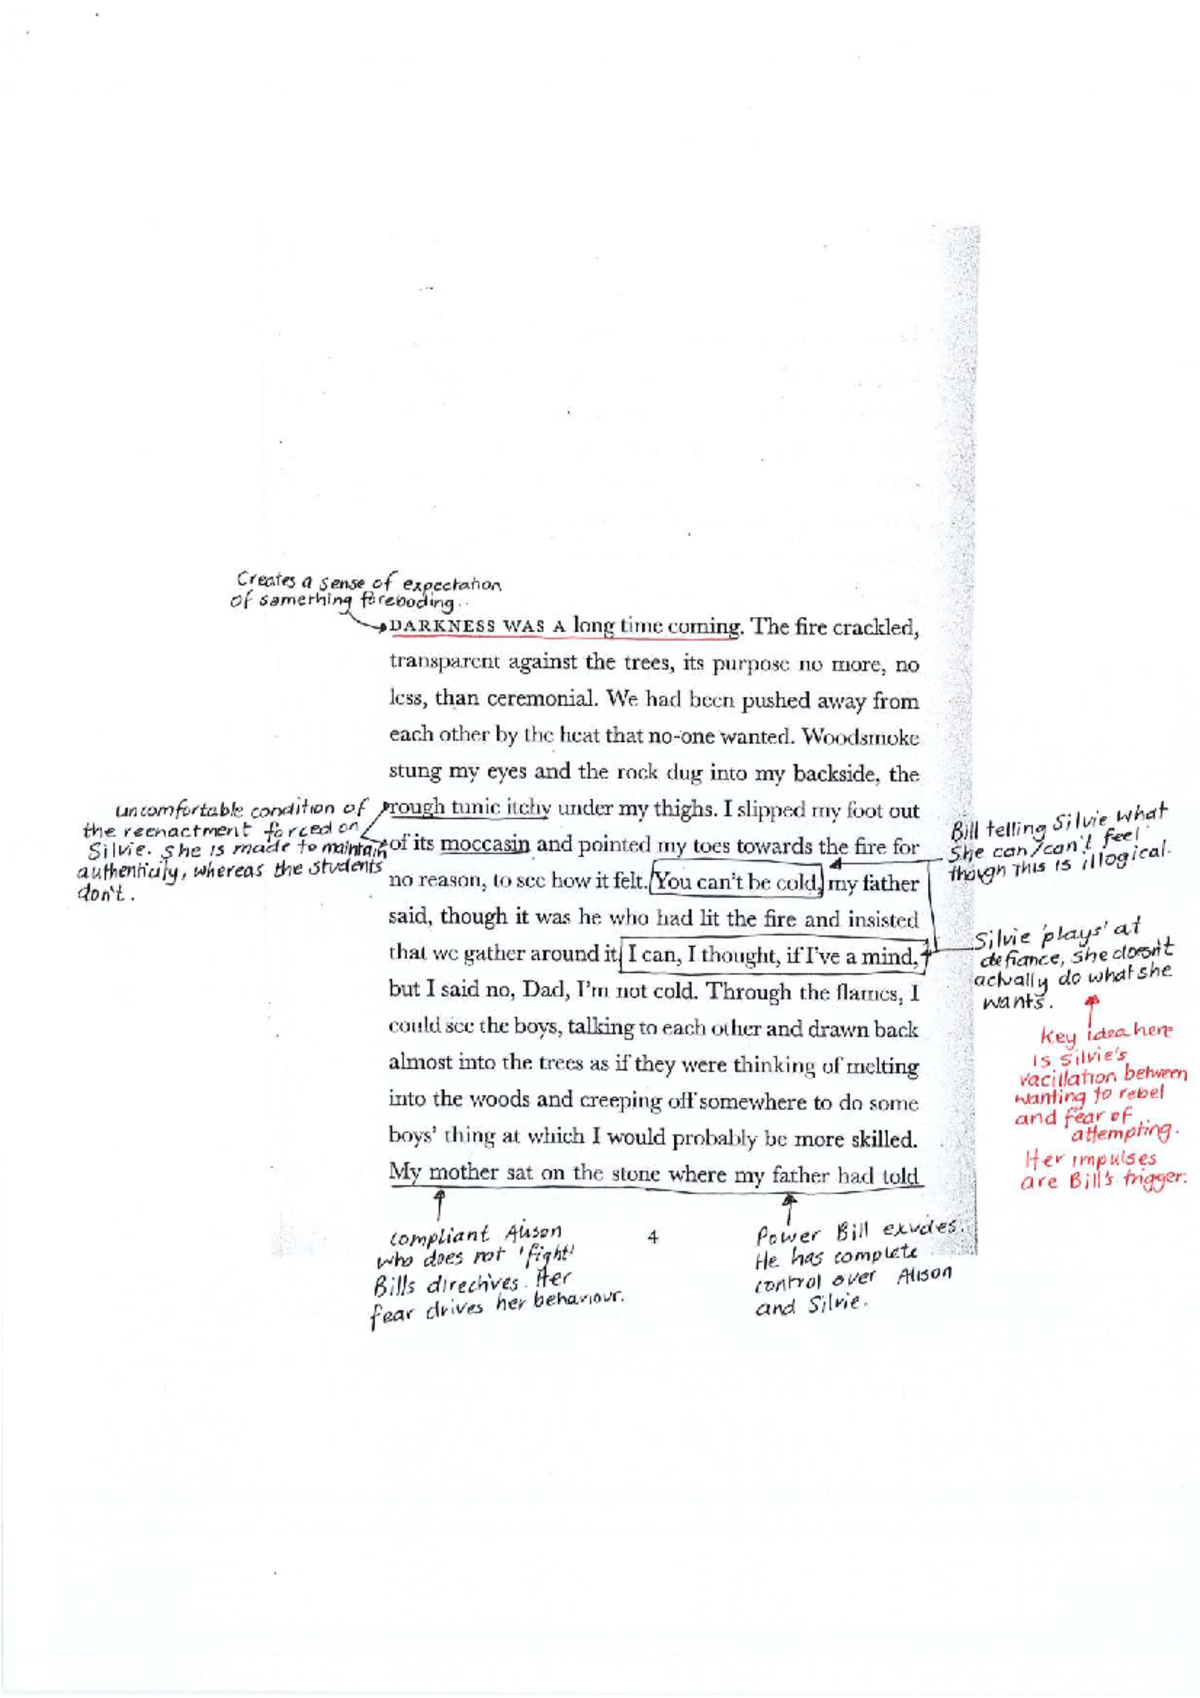 Creates a sense of expectation
of something foreboding..
DARKNESS WAS A long time coming. The fire crackled,
transparent against the trees, its purpose no more, no
less, than ceremonial. We had been pushed away from
each other by the heat that no-one wanted. Woodsmoke
stung my eyes and the rock dug into my backside, the
rough tunic itchy under my thighs. I slipped my foot out
of its moccasin and pointed my toes towards the fire for
no reason, to see how it felt. You can't be cold, my father
said, though it was he who had lit the fire and insisted
that we gather around it. I can, I thought, if I've a mind,
but I said no, Dad, I'm not cold. Through the flames, I
could see the boys, talking to each other and drawn back
almost into the trees as if they were thinking of melting
into the woods and creeping off somewhere to do some
boys' thing at which I would probably be more skilled.
My mother sat on the stone where my father had told
4
uncomfortable condition of
the reenactment forced on
Silvie. she is made to maintain
authenticity, whereas the students
don't.
Bill telling Silvie what
she can/can't feel
though this is illogical.
Silvie 'plays' at
defiance, she doesn't
actually do what she
wants.
Key idea here
is Silvie's
vacillation between
wanting to rebel
and fear of
attempting.
Her impulses
are Bill's trigger.
compliant Alison
who does not 'fight'
Bills directives. Her
fear drives her behaviour.
Power Bill exudes.
He has complete
control over Alison
and Silvie.